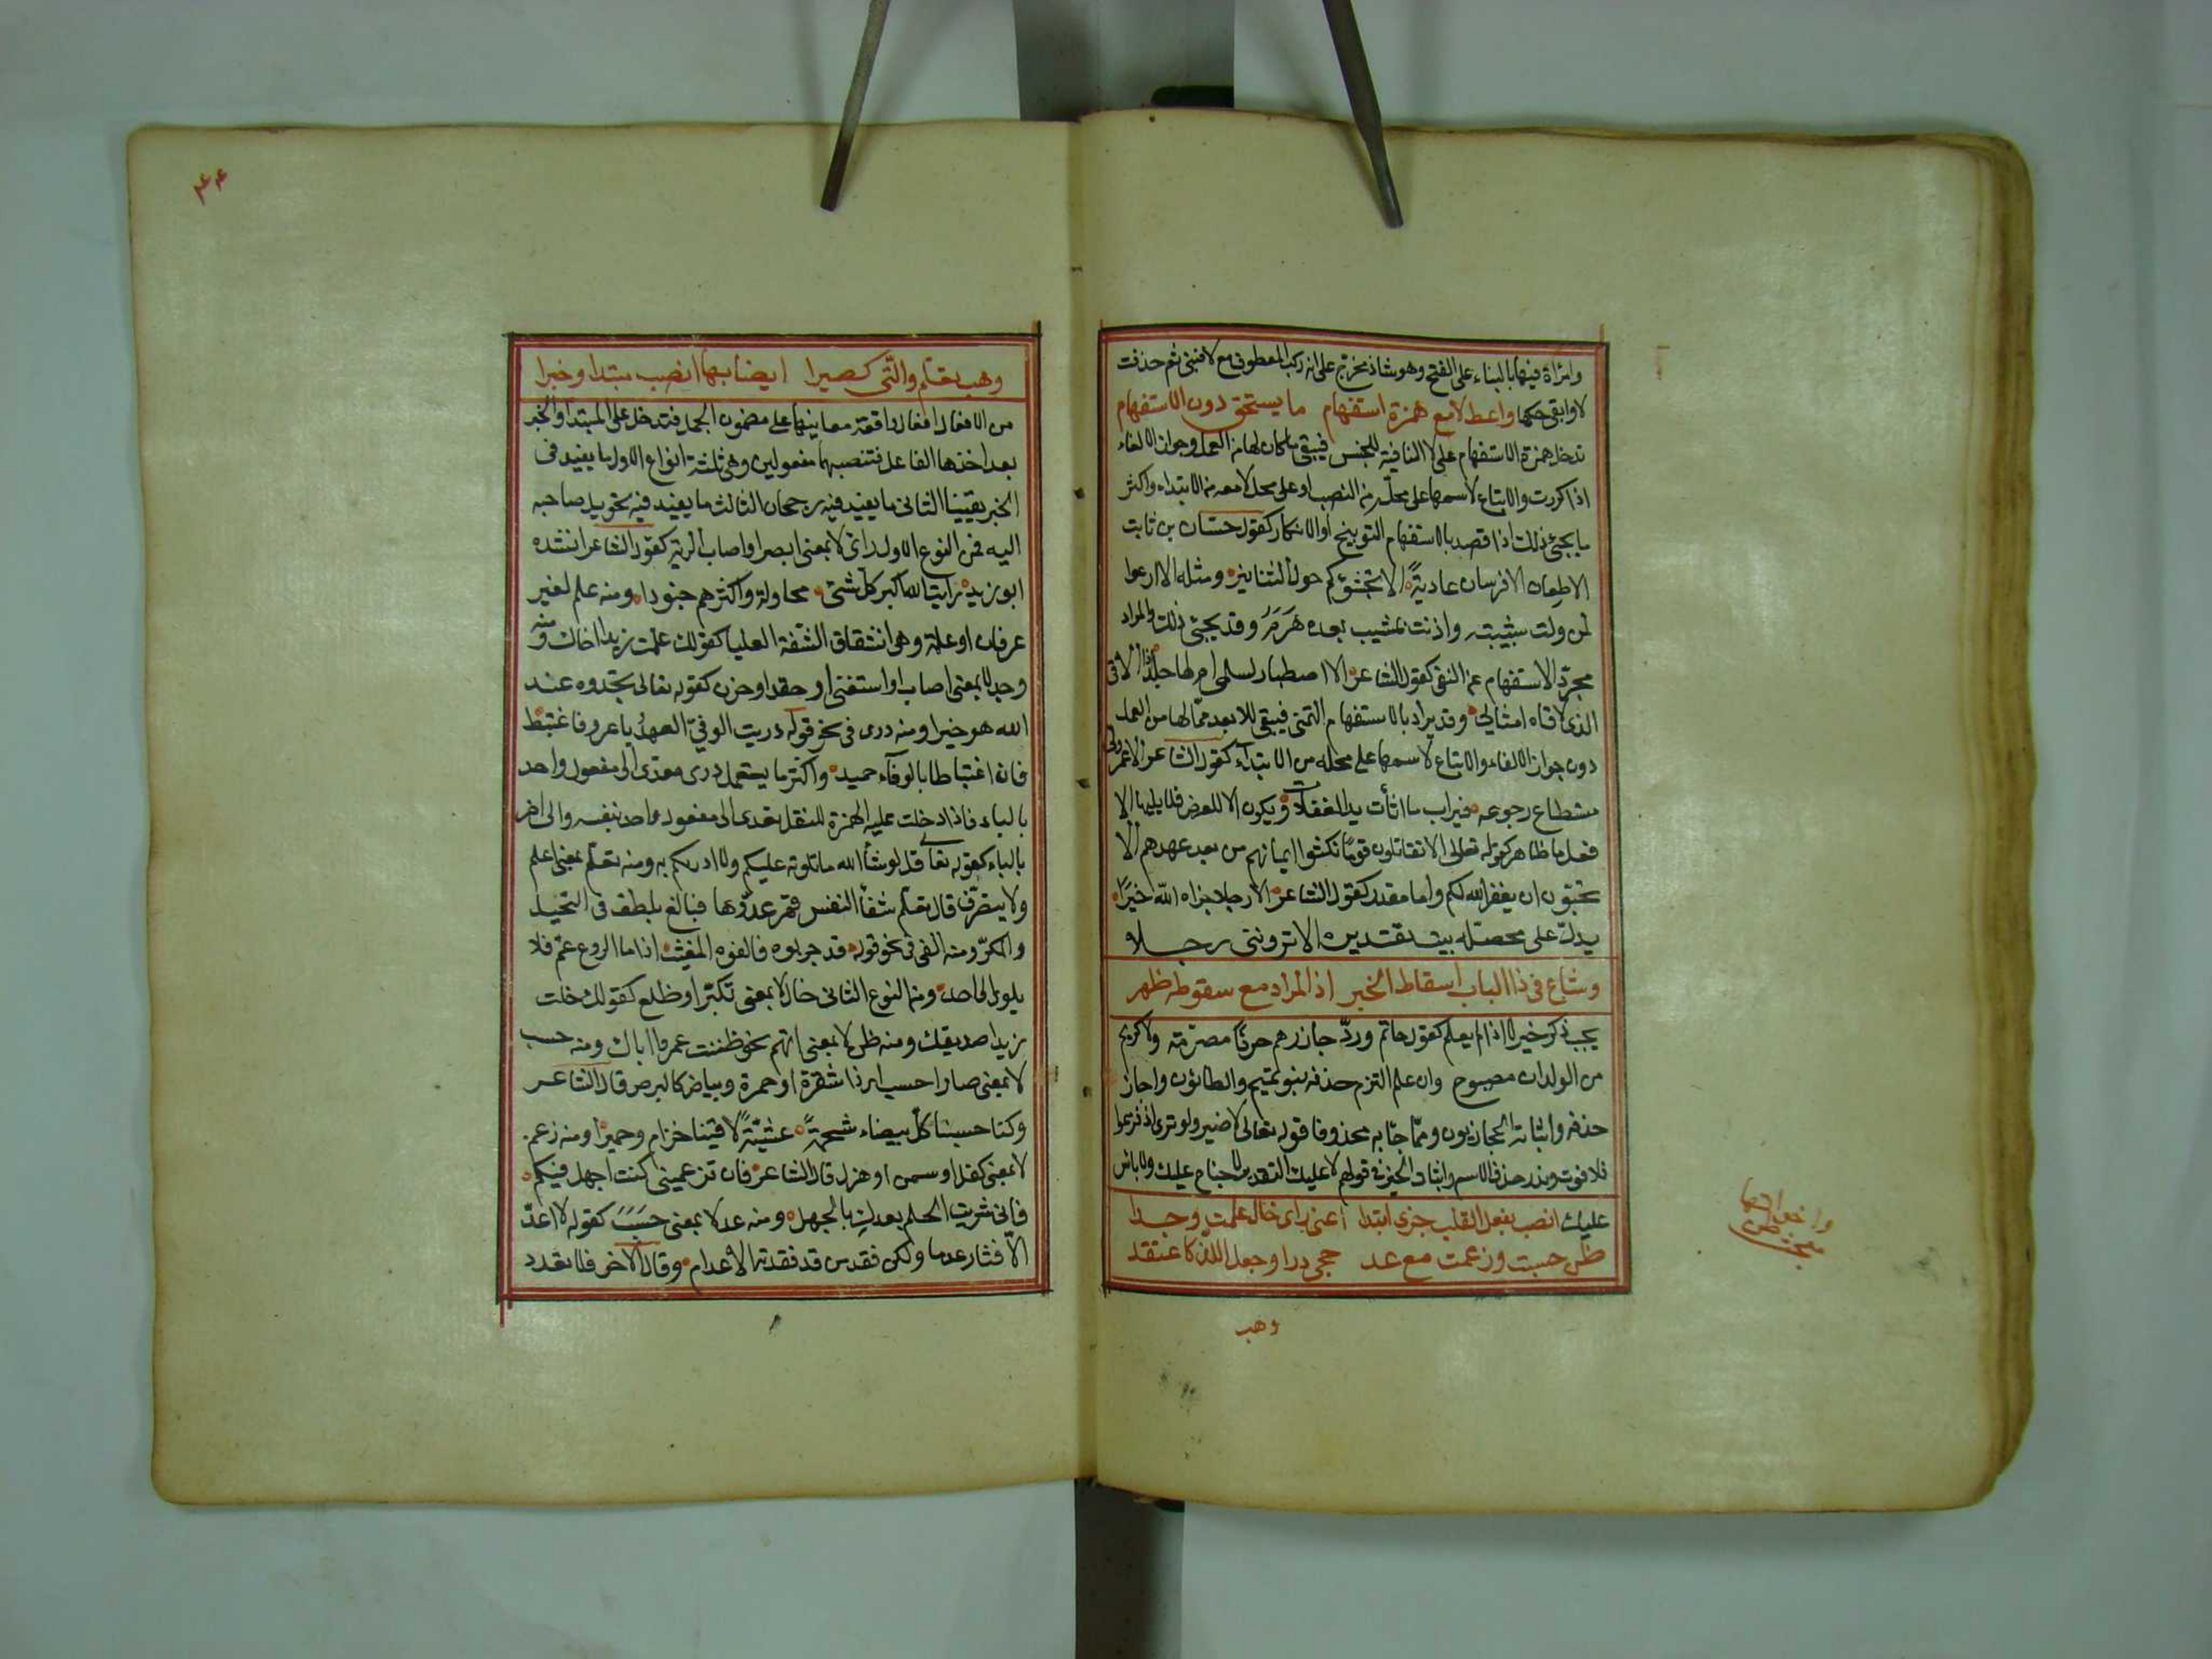 وامرأة فيها بالبناء على الفتح وهو شاذ يخرج على انه ركب المعطوف مع لا فبنى ثم حذفت
لا وابقى حكمها واعط لا مع همزة استفهام ما يستحق دون الاستفهام
تدخل همزة الاستفهام على لا النافية للجنس فيبقى ما كان لها من العمل وجواز الالغاء
اذا كررت والاتباع لاسمها على محله من النصب او على محل لا معه من الابتداء واكثر
ما يجئ ذلك اذا قصد بالاستفهام التوبيخ او الانكار كقول حسّان بن ثابت
الا طعان الا فرسان عاديةً الا تجشؤكم حول التنانير ومثله الا ارعوا
لمن ولت شبيبته واذنت بمشيب بعده هَرَمُ وقد يجئ ذلك والمراد
مجرّد الاستفهام عن النفى كقول الشاعر الا اصطبار لسلمى ام لها جلد اذا الاقى
الذى لاقاه امثالى وقد يراد بالاستفهام التمنى فيبقى للا بعد ممّا لها من العمل
دون جواز الالغاء والاتباع لاسمها على محله من الابتداء كقول الشاعر الا عمر ولى
مستطاع رجوعه فيراب ما اثأت يد الغفلات ويكون الا للعرض فلا يليها الا
فعل اما ظاهر كقوله تعالى الا تقاتلون قومًا نكثوا ايمانهم من بعد عهدهم الا
تحبّون ان يغفر الله لكم واما مقدر كقول الشاعر الا رجلا جزاه الله خيرًا
يدلّ على محصّلة بيت تقديره الا ترونتى رجلا
وشاع فى ذا الباب اسقاط الخبر اذ المراد مع سقوطه ظهر
يجب ذكر خبر لا اذا لم يعلم كقول حاتم وردّ جازرهم حرفًا مصرّمة ولا كريم
من الولدان مصبوح وان علم التزم حذفه بنو تميم والطائيون واجاز
حذفه واثباته الحجازيون وممّا جا به محذوفا قوله تعالى لا ضير ولو ترى اذ فزعوا
فلا فوت وندر حذف الاسم واثبات الخبر فى قولهم لا عليك التقدير لا جناح عليك ولا باس
عليك انصب بفعل القلب جزى ابتدا اعنى راى خال علمت وجدا
ظن حسبت وزعمت مع عد حجى درا وجعل اللذ كاعتقد
وهب
وهب تعلم والتى كصيرا ايضا بها انصب مبتدا وخبرا
من الافعال افعال واقعة معانيها على مضمون الجمل فتدخل على المبتدا والخبر
بعد اخذها الفاعل فتنصبهما مفعولين وهى ثلثة انواع الاول ما يفيد فى
الخبر يقينا الثانى ما يفيد فيه رجحان الثالث ما يفيد فيه تحويل صاحبه
اليه فمن النوع الاول راى لا بمعنى ابصر او اصاب الرية كقول الشاعر انشده
ابو زيد رايت الله اكبر كل شئ محاولة واكثرهم جنودا ومنه علم لغير
عرفان او علمة وهى انشقاق الشفة العليا كقولك علمت زيدا اخاك ومنه
وجد لا بمعنى اصاب او استغنى او حقد او حزن كقوله تعالى تجدوه عند
الله هو خيرا ومنه درى فى نحو قوله دريت الوفىّ العهدُ يا عرو فاغتبط
فان اغتباطا بالوفاء حميد واكثر ما يستعمل درى معدّى الى مفعول واحد
بالباء فاذا دخلت عليه الهمزة للنقل تعدى الى مفعول واحد بنفسه والى اخر
بالباء كقوله تعالى قل لو شأ الله ما تلوته عليكم ولا ادريكم به ومنه تعلّم بمعنى اعلم
ولا يتصرّف قال تعلّم شفأ النفس قهر عدوّها فبالغ بلطف فى التحيل
والمكرّ ومنه الفى فى نحو قوله قد جربوه فالفوه المغيث اذا ما الروع عمّ فلا
يلوى لاحد ومن النوع الثانى خال لا بمعنى تكبّر او ظلع كقولك خلت
زيدا صديقك ومنه ظن لا بمعنى اتهم نحو ظننت عمرا اباك ومنه حسب
لا بمعنى صار احسب اى ذا شقرة او حمرة وبياض كالبرص قال الشاعر
وكنا حسبنا كل بيضاء شحمةً عشيّةً لاقينا خزام وحميرا ومنه زعم
لا بمعنى كفل او سمن او هزل قال الشاعر فان تزعمينى كنت اجهل فيكم
فانى شريت الحلم بعدكِ بالجهل ومنه عد لا بمعنى حَسَبَ كقوله لا اعدّ
الاقتار عدما ولكن فقد من قد فقدته الاعدام وقال الاخر فلا تعدد